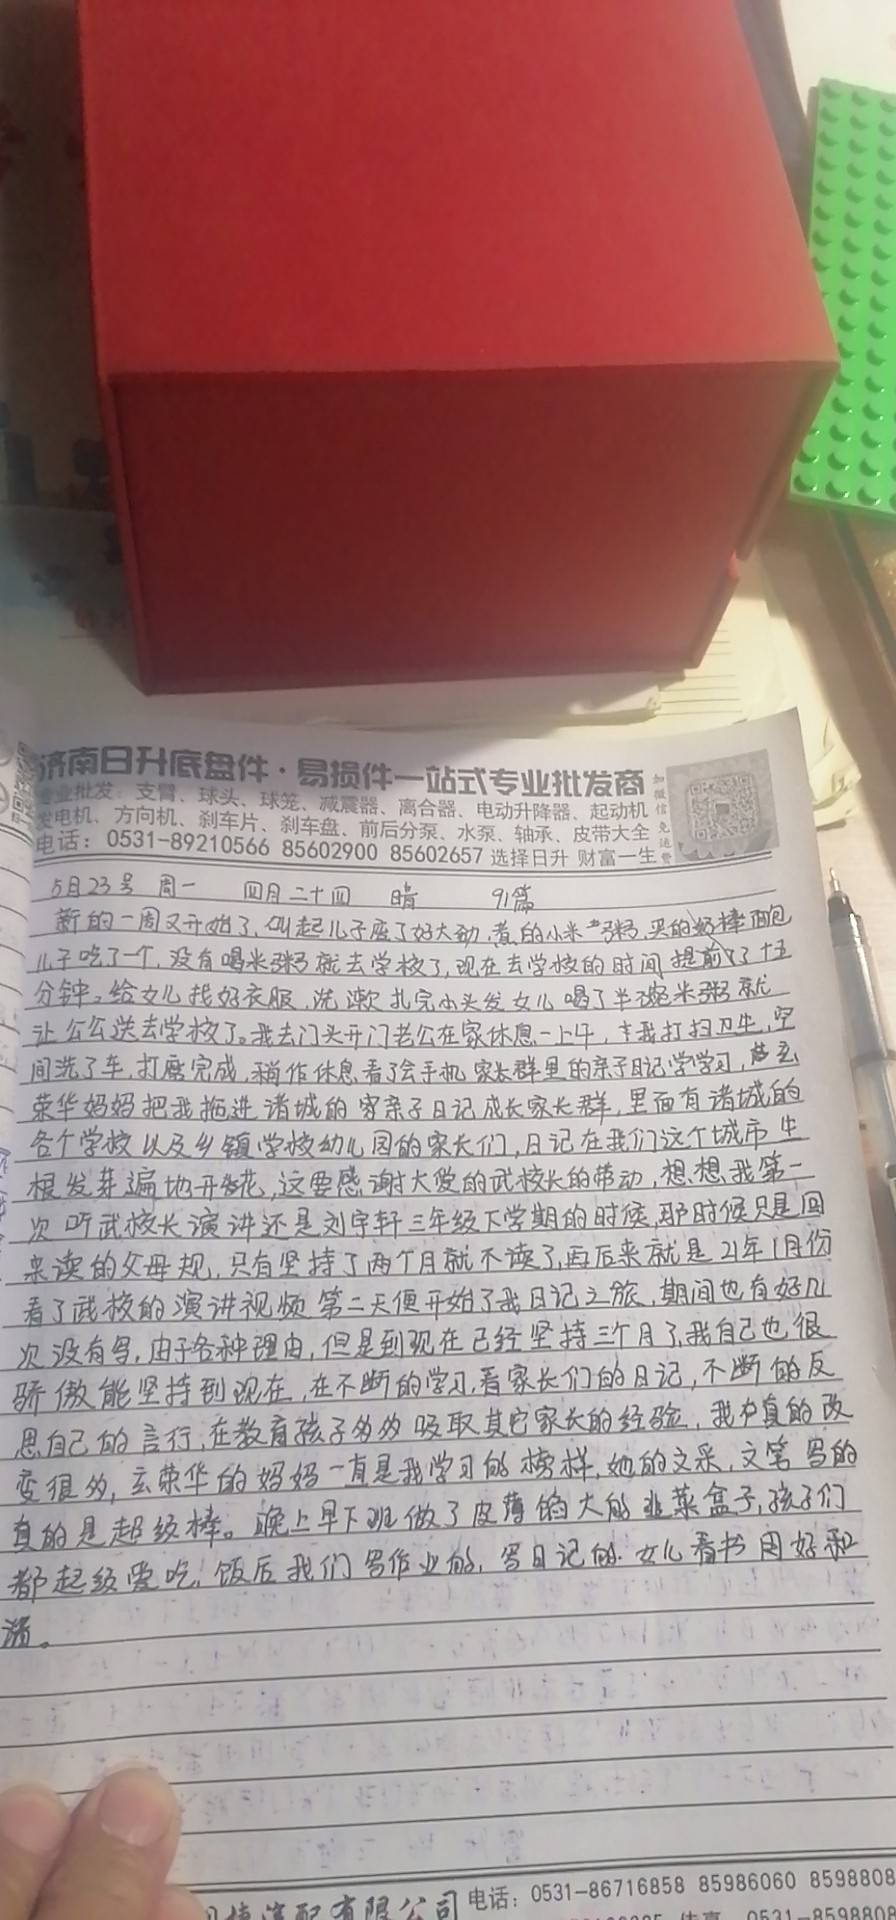 济南日升底盘件·易损件一站式专业批发商
专业批发：支臂、球头、球笼、减震器、离合器、电动升降器、起动机
发电机、方向机、刹车片、刹车盘、前后分泵、水泵、轴承、皮带大全
电话：0531-89210566 85602900 85602657 选择日升 财富一生
加微信免运费
5月23号 周一 四月二十四 晴 91篇
新的一周又开始了,叫起儿子废了好大劲,煮的小米粥,买的奶棒面包
儿子吃了一个,没有喝米粥就去学校了,现在去学校的时间提前了十五
分钟。给女儿找好衣服,洗漱扎完小头发女儿喝了半碗米粥就
让公公送去学校了。我去门头开门老公在家休息一上午,我打扫卫生,空
间洗了车,打磨完成,稍作休息看了会手机家长群里的亲子日记学学习,
荣华妈妈把我拖进诸城的家亲子日记成长家长群,里面有诸城的
各个学校以及乡镇学校幼儿园的家长们,日记在我们这个城市生
根发芽遍地开花,这要感谢大爱的武校长的带动,想想我第一
次听武校长演讲还是刘宇轩三年级下学期的时候,那时候只是回
来读的父母规,只有坚持了两个月就不读了,再后来就是21年1月份
看了武校的演讲视频第二天便开始了我日记之旅,期间也有好几
次没有写,由于各种理由,但是到现在已经坚持三个月了,我自己也很
骄傲能坚持到现在,在不断的学习,看家长们的日记,不断的反
思自己的言行,在教育孩子多多吸取其它家长的经验,我也真的改
变很多,玄荣华的妈妈一直是我学习的榜样,她的文采,文笔写的
真的是超级棒。晚上早下班做了皮薄馅大的韭菜盒子,孩子们
都起级爱吃,饭后我们写作业的,写日记的.女儿看书图好和
谐。
汽配有限公司 电话：0531-86716858 85986060 8598808
传真 0531-8598808